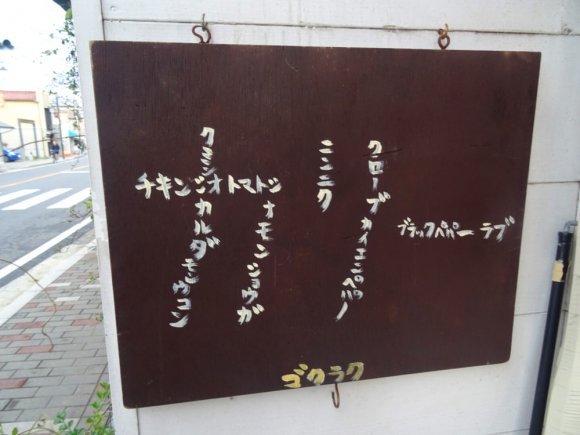 クミン
チキンジオトマトシ
カルダモンウコン
オモンショウガ
ニンニク
クローブカイエンペパー
ブラックペパー ラブ
ゴクラク